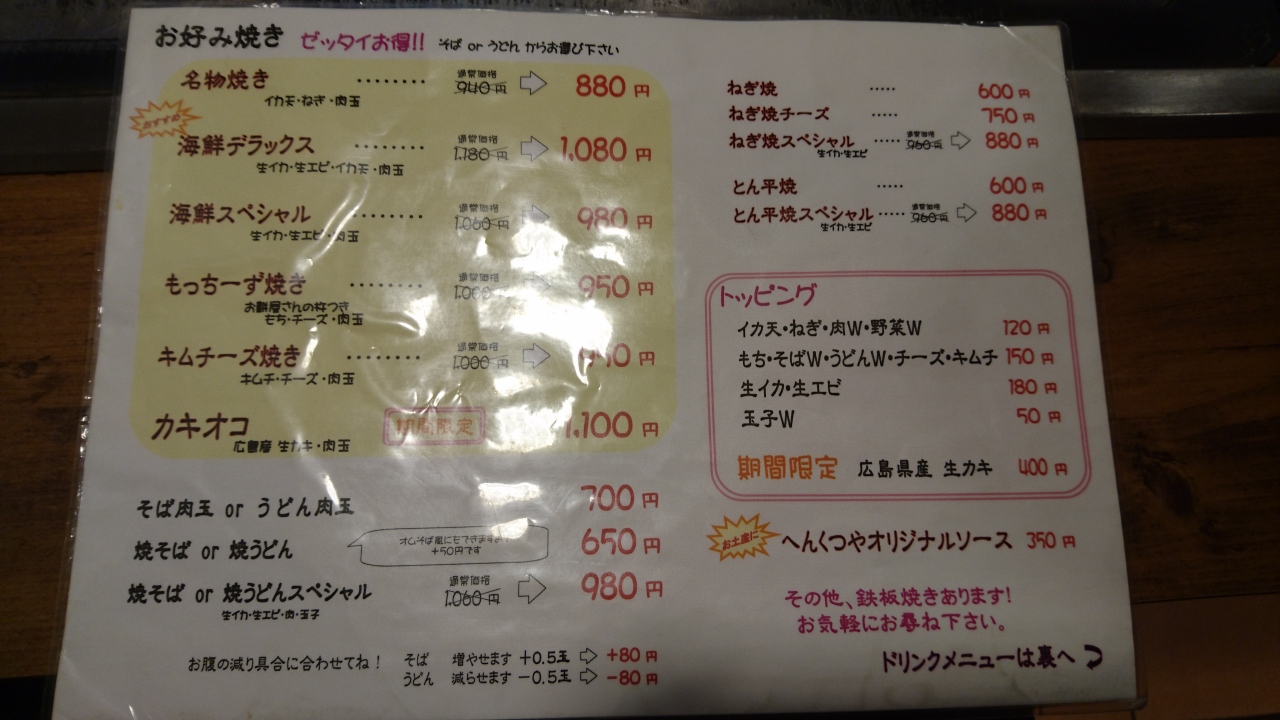 お好み焼き ゼッタイお得!! そば or うどん からお選び下さい
名物焼き ········ 通常価格 940円 ⇨ 880円
イカ天・ねぎ・肉玉
おすすめ
海鮮デラックス ········ 通常価格 1,180円 ⇨ 1,080円
生イカ・生エビ・イカ天・肉玉
海鮮スペシャル ········ 通常価格 1,060円 ⇨ 980円
生イカ・生エビ・肉玉
もっちーず焼き ········ 通常価格 1,060円 ⇨ 950円
お餅屋さんの杵つき
もち・チーズ・肉玉
キムチーズ焼き ········ 通常価格 1,000円 ⇨ 円
キムチ・チーズ・肉玉
カキオコ 期間限定 1,100円
広島産 生カキ・肉玉
そば肉玉 or うどん肉玉 700円
焼そば or 焼うどん 650円
オムそば風にもできますよ
+50円です
焼そば or 焼うどんスペシャル 通常価格 1,060円 ⇨ 980円
生イカ・生エビ・肉・玉子
お腹の減り具合に合わせてね! そば 増やせます +0.5玉 ⇨ +80円
うどん 減らせます −0.5玉 ⇨ −80円
ねぎ焼 ····· 600円
ねぎ焼チーズ ····· 750円
ねぎ焼スペシャル ····· 通常価格 960円 ⇨ 880円
生イカ・生エビ
とん平焼 ····· 600円
とん平焼スペシャル ····· 通常価格 960円 ⇨ 880円
生イカ・生エビ
トッピング
イカ天・ねぎ・肉W・野菜W 120円
もち・そばW・うどんW・チーズ・キムチ 150円
生イカ・生エビ 180円
玉子W 50円
期間限定 広島県産 生カキ 400円
お土産に へんくつやオリジナルソース 350円
その他、鉄板焼きあります!
お気軽にお尋ね下さい。
ドリンクメニューは裏へ